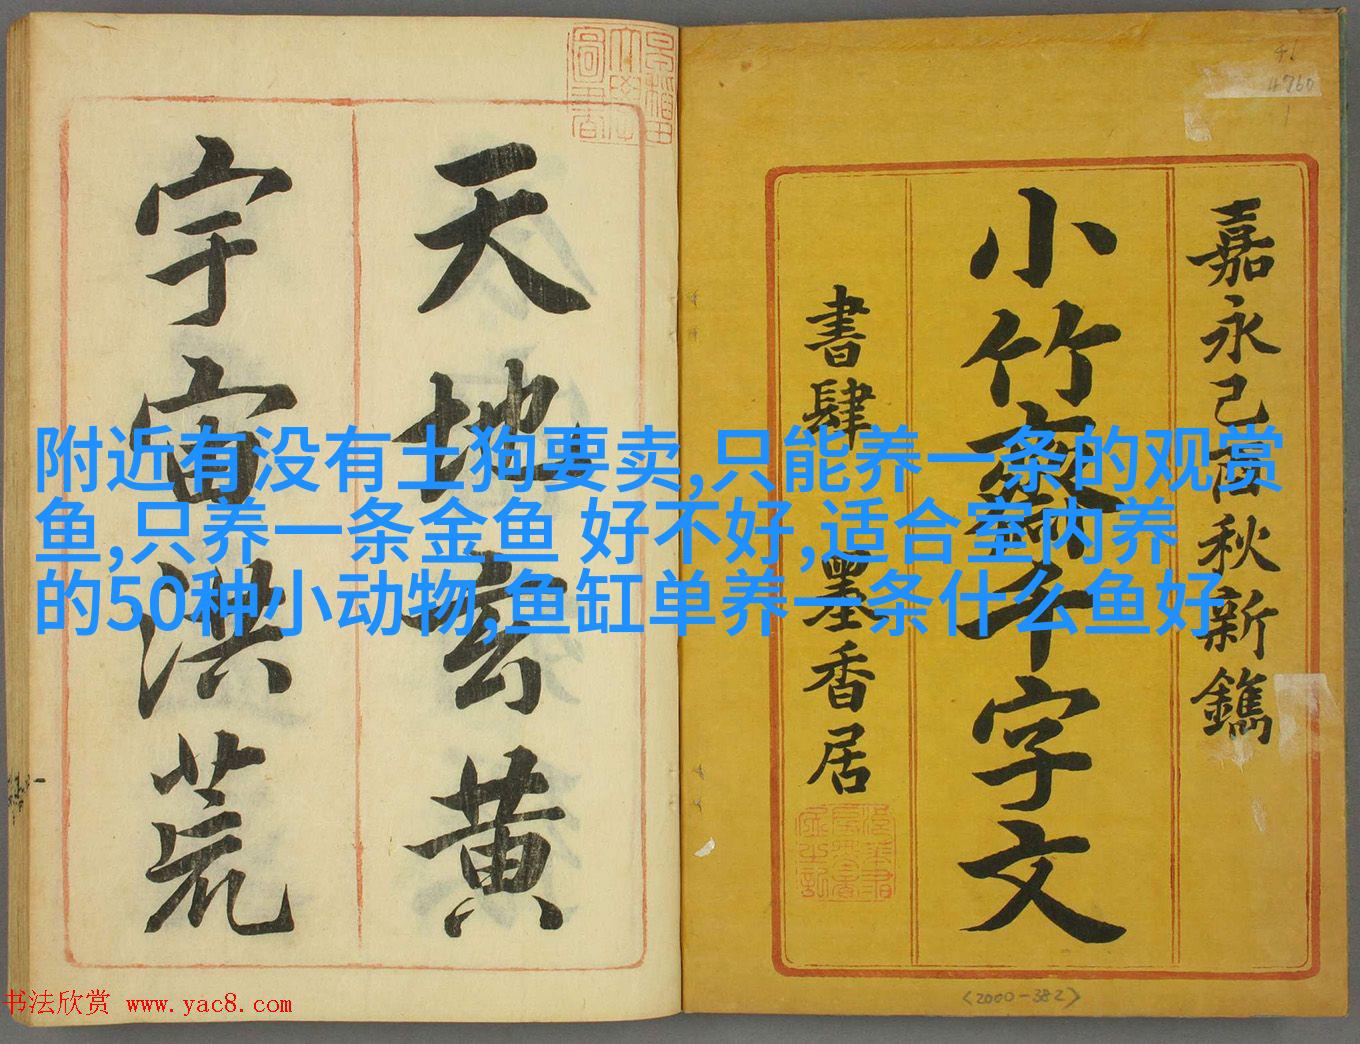 嘉永己酉秋新鐫
小竹齋千字文
書肆 墨香居
天地玄黄
宇宙洪荒
附近有没有土狗要卖,只能养一条的观赏
鱼,只养一条金鱼 好不好,适合室内养
的50种小动物,鱼缸单养一条什么鱼好
4760
<2000-382>
书法欣赏 www.yac8.com